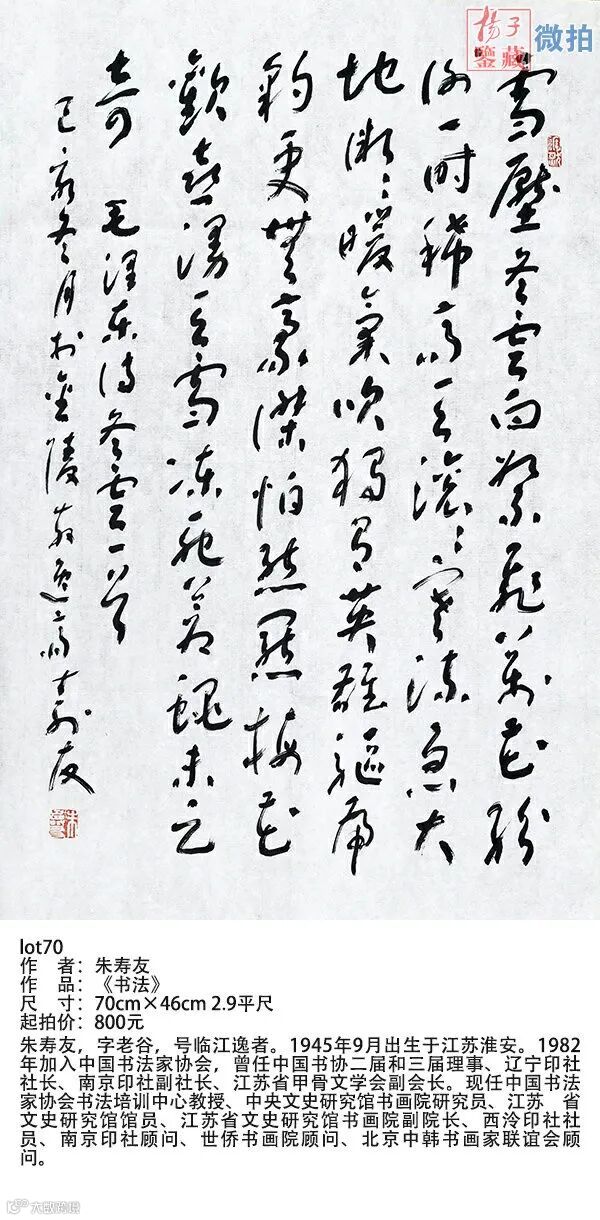 楊子
鑒藏
微拍
雪壓冬雲白絮飛萬花紛
謝一時稀高天滚々寒流急大
地微々暖氣吹獨有英雄驅虎
豹更無豪傑怕熊羆梅花
歡喜漫天雪凍死蒼蠅未足
奇 毛澤東詩冬雲一首
己亥冬月於金陵逸齋壽友
lot70
作 者:朱寿友
作 品:《书法》
尺 寸:70cm×46cm 2.9平尺
起拍价:800元
朱寿友,字老谷,号临江逸者。1945年9月出生于江苏淮安。1982
年加入中国书法家协会,曾任中国书协二届和三届理事、辽宁印社
社长、南京印社副社长、江苏省甲骨文学会副会长。现任中国书法
家协会书法培训中心教授、中央文史研究馆书画院研究员、江苏 省
文史研究馆馆员、江苏省文史研究馆书画院副院长、西泠印社社
员、南京印社顾问、世侨书画院顾问、北京中韩书画家联谊会顾
问。
大数跨境